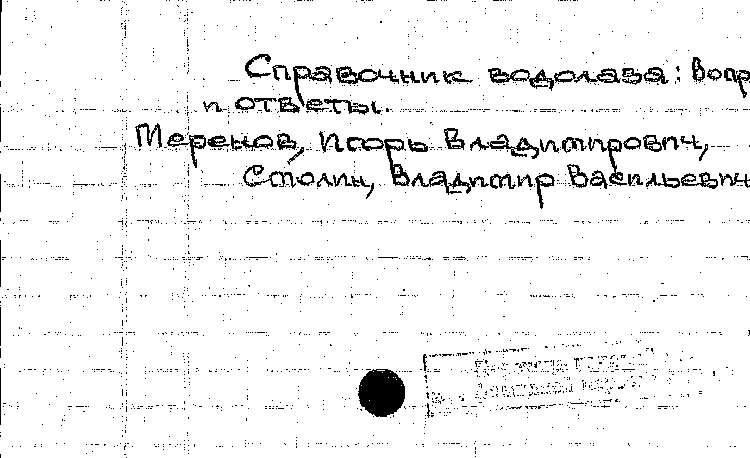 Справочник водолаза: Вопр
и ответы.
Меренов, Игорь Владимирович,
Смолин, Владимир Васильевич